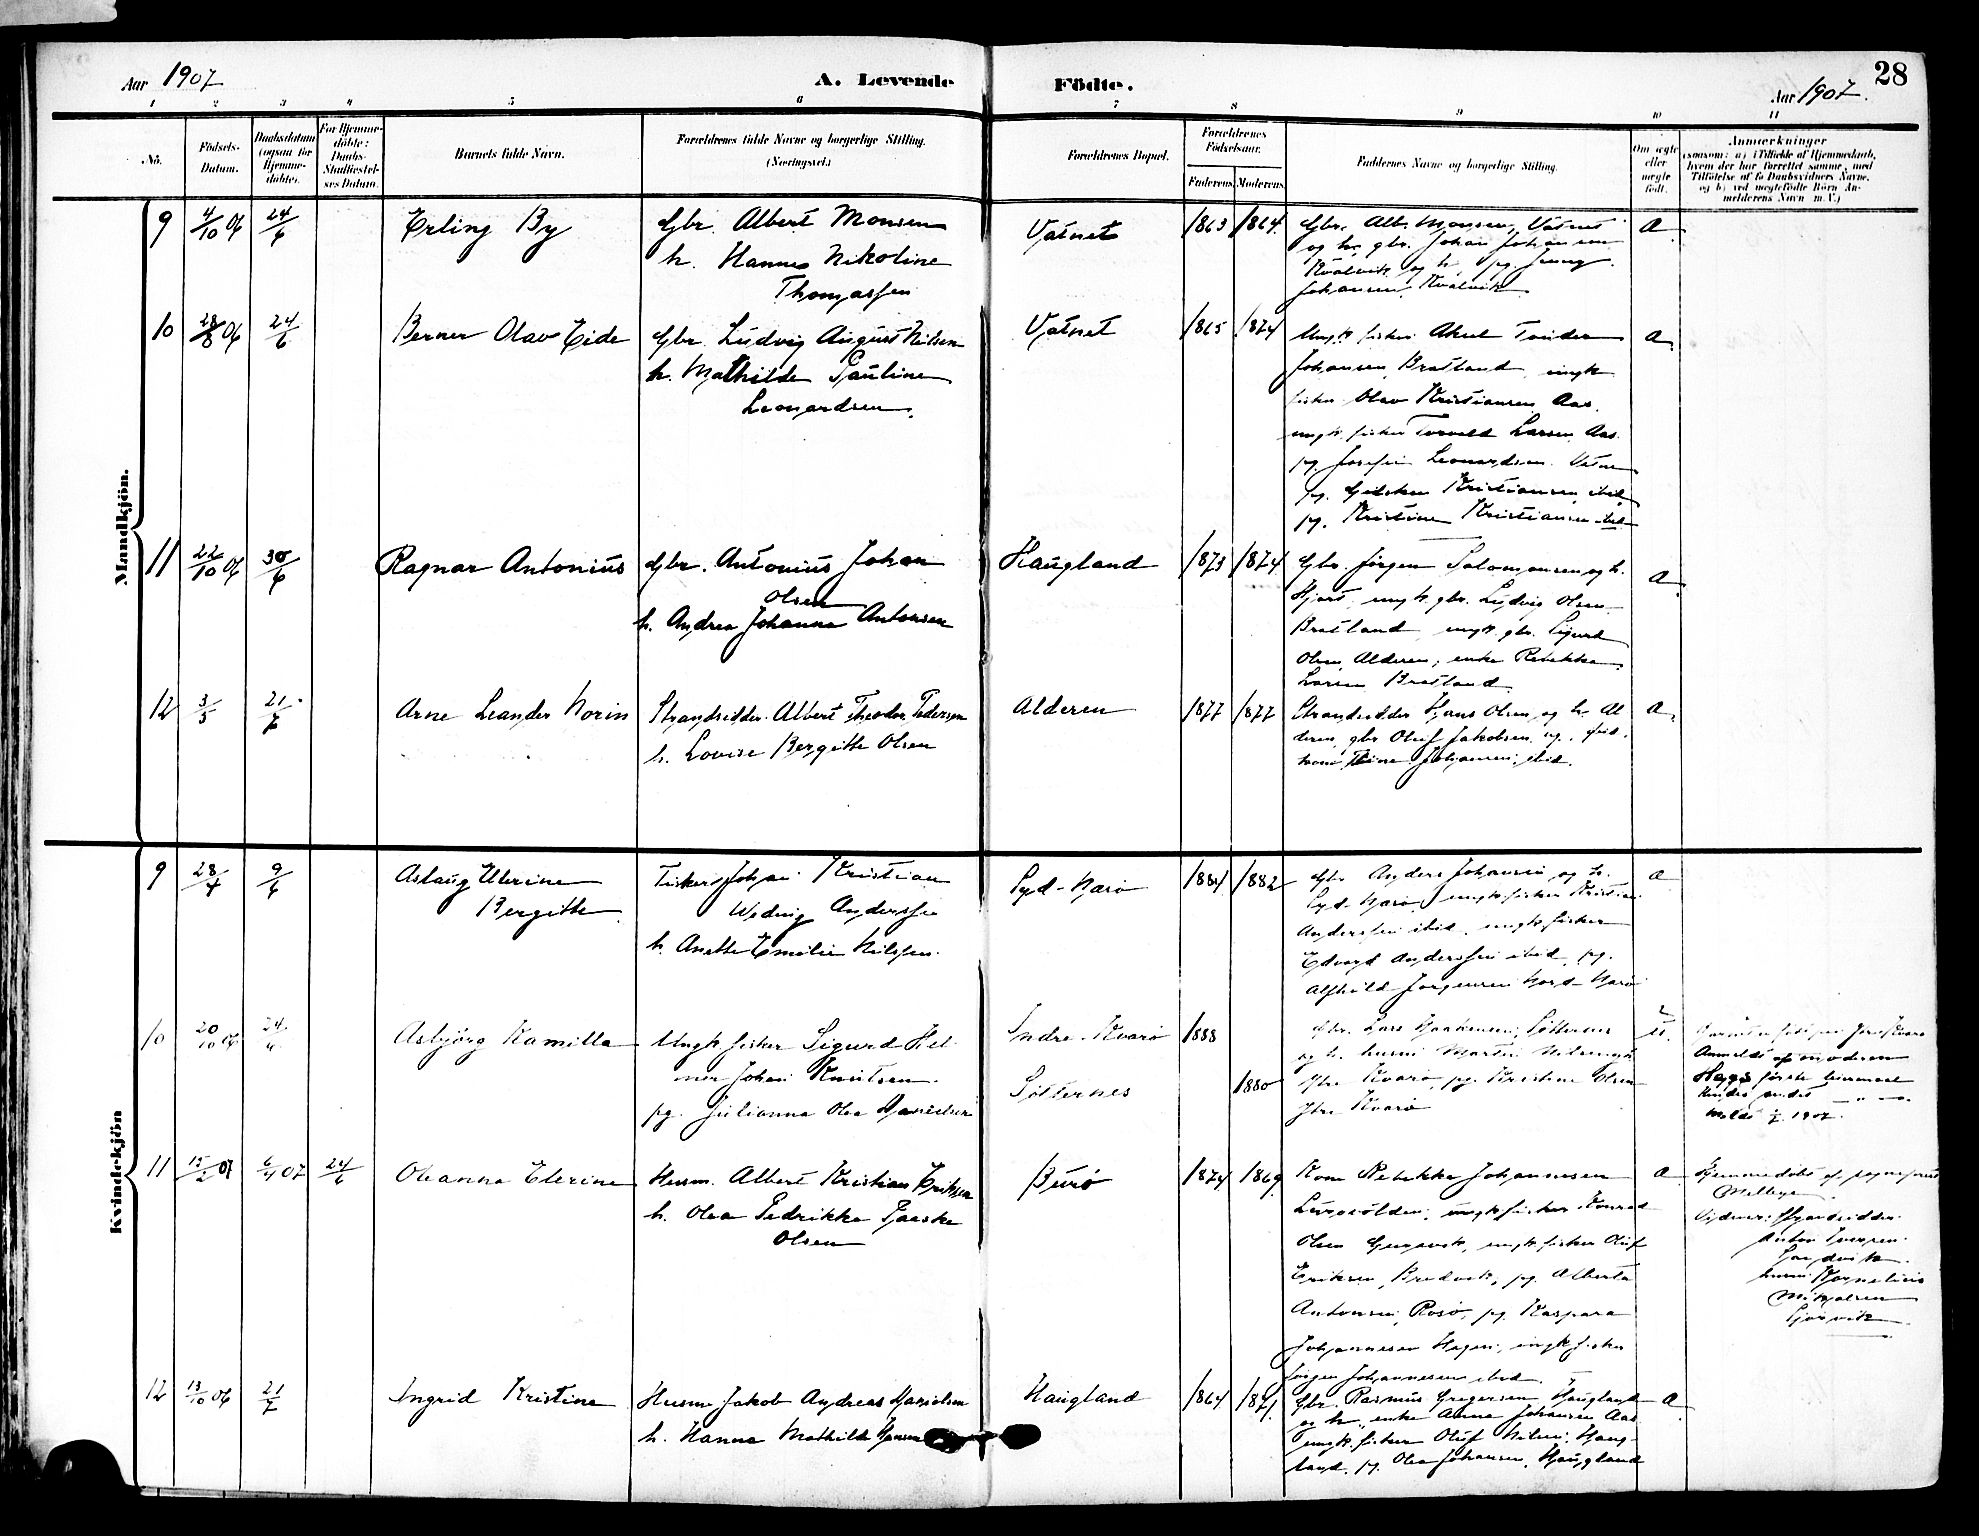 28
Aar 1907
A. Levende Födte.
Aar 1907.
1 2 3 4 5 6 7 8 9 10 11
No.
Födsels-
Datum.
Daabsdatum
(ogsaa for
Hjemme-
döbte).
For Hjemme-
döbte:
Daabs-
Stadfæstel-
ses Datum.
Barnets fulde Navn.
Forældrenes fulde Navne og borgerlige Stilling.
(Næringsvei.)
Forældrenes Bopæl.
Forældrenes
Födselsaar.
Faderens. Moderens.
Faddernes Navne og borgerlige Stilling.
Om ægte
eller
uægte
født.
Anmærkninger
(saasom: a) i Tilfælde af Hjemmedaab,
hvem der har forrettet samme, med
Tilföielse af to Daabsvidners Navne,
og b) ved uegtefödte Börn An-
melderens Navn m. V.)
Mandkjön.
9 4/10 06 24/6
Erling By
Gbr. Albert Monsen
h. Hanna Nikoline
Thomassen
Vatnet
1863 1864
Gbr. Alb. Monsen, Vatnet
og h., gbr. Johan Johansen
Kvalvik og h., pg. Jenny
Johansen, Kvalvik
a.
10 28/8 06 24/6
Berner Olav Eide
Gbr. Ludvig August Nilsen
h. Mathilde Pauline
Leonardsen.
Vatnet
1865 1874
Ungk. fisker Aksel Tonder
Johansen, Bratland, ungk
fisker Olav Kristiansen Aas.
ungk. fisker Torvald Larsen, Aas.
pg. Josefin Leonardsen. Vatne
pg. Kristiansen ibid
pg. Kristine Kristiansen ibid
a.
11 22/10 06 30/6
Ragnar Antonius
Gbr. Antonius Johan
Olsen
h. Andrea Johanna Antonsen
Haugland
1873 1874
Gbr. Jörgen Salomonsen og h.
Hjart, ungk. gbr. Ludvig Olsen
Bratland, ungk. gbr. Sigurd
Olsen, Alderen, enke Rebekka
Larsen Bratland
a.
12 3/3 21/7
Arne Leander Norin
Strandsidder Albert Theodor Pedersen
h. Lovise Bergitte Olsen
Alderen
1877 1877
Strandsidder Hans Olsen og h. Al
deren, gbr Oluf Jakobsen, og.
kone, Johansen, ibid.
a.
Kvindekjön
9 28/4 9/6
Aslaug Uterine
Bergitte
Fisker Johan Kristian
Wedvig Anderssen
h. Anette Emelie Nilssen.
Syd-Narö
1884 1882
Gbr. Anders Johansen og h.
Syd-Narö, ungk. fisker Kristian
Anderssen ibid, ungk. fisker
Edvard Anderssen ibid, pg.
Alfhild Jörgensen Nord-Narö
a
10 20/10 06
Asbjörg Kamilla
Ungk fisker Sigurd Hel-
mer Johan Knutsen.
pg. Julianna Olea Danielsen
Indre-Kvarö
Sötternes
1888
1880
Gbr. Lars Sötternes
og h. Martin Nilsen
Ytre Kvarö, pg. Kristine Olsen
Ytre Kvarö
Anmeldt af moderen
Hans förste leiermaal
Hendes andet
Meldt 1907.
11 15/2 07 6/4 07 24/6
Oleanna Elerine
Husm. Albert Kristian Eriksen
h. Olea Fedrikke
Olsen
Burö
1874 1869
Kone Rebekka Johannesen
ungk. fisker Konrad
Olsen ungk. fisker Oluf
Eriksen, Bredvik, pg. Alberta
Antonsen, Rosö, pg. Kaspara
Johannesen Hagen, ungk fisker
Jörgen Johannesen ibid.
a
Hjemmedöbt af sogneprest
Melbye
Vidner: Strandsidder
Anton Iversen
Kornelius
Mikalsen
12 13/10 06 21/7
Ingrid Kristine
Husm Jakob Andreas Danielsen
h. Hanna Mathilde Hansen
Haugland
1864 1871.
Gbr. Rasmus Gregersen Haugland
og h., enke Anna Johansen Aas
ungk. fisker Oluf Nilsen, Haug-
land. pg. Olea Johansen, Haugland
a.